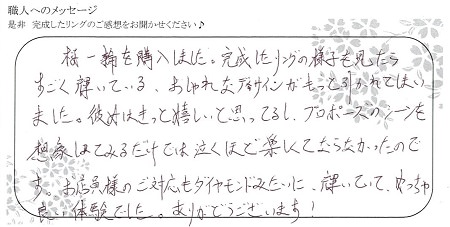 職人へのメッセージ
是非 完成したリングのご感想をお聞かせください♪
桜一輪を購入しました。完成したリングの様子を見たら
すごく輝いている、おしゃれなデザインがもっと引かれてしまい
ました。彼女はきっと嬉しいと思ってるし、プロポーズのシーンを
想象してみるだけでは泣くほど楽しくてならなかったので
す。お店員様のご対応もダイヤモンドみたいに、輝いていて、めっちゃ
良い体験でした。ありがとうございます!